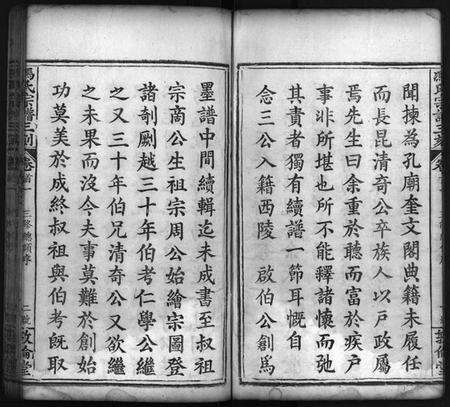 聞揀為孔廟奎文閣典籍未履任
而長昆清奇公卒族人以戶政屬
焉先生曰余重於聽而富於疾戶
事非所堪也所不能釋諸懷而弛
其責者獨有續譜一節耳慨自
念三公入籍西陵 啟伯公創為
墨譜中間續輯迄未成書至叔祖
宗商公生祖宗周公始繪宗圖登
諸剞劂越三十年伯考仁學公繼
之又三十年伯兄清奇公又欲繼
之未果而沒今夫事莫難於創始
功莫美於成終叔祖與伯考既取
馮氏宗譜三刻
卷首
敦倫堂